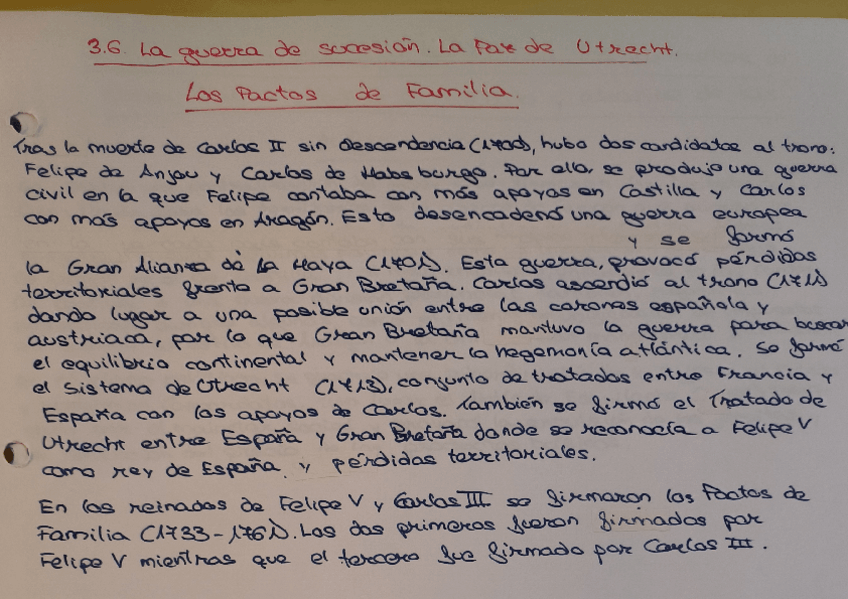 3.6. La guerra de sucesión. La Paz de Utrecht.
Los Pactos de Familia.
Tras la muerte de Carlos II sin descendencia (1700), hubo dos candidatos al trono:
Felipe de Anjou y Carlos de Habsburgo. Por ello, se produjo una guerra
civil en la que Felipe contaba con más apoyos en Castilla y Carlos
con más apoyos en Aragón. Esto desencadenó una guerra europea
y se formó
la Gran Alianza de la Haya (1701). Esta guerra, provocó pérdidas
territoriales frente a Gran Bretaña. Carlos ascendió al trono (1711)
dando lugar a una posible unión entre las coronas española y
austriaca, por lo que Gran Bretaña mantuvo la guerra para buscar
el equilibrio continental y mantener la hegemonía atlántica. Se formó
el Sistema de Utrecht (1713), conjunto de tratados entre Francia y
España con los apoyos de Carlos. También se firmó el Tratado de
Utrecht entre España y Gran Bretaña donde se reconocía a Felipe V
como rey de España, y pérdidas territoriales.
En los reinados de Felipe V y Carlos III se firmaron los Pactos de
Familia (1733-1761). Los dos primeros fueron firmados por
Felipe V mientras que el tercero fue firmado por Carlos III.